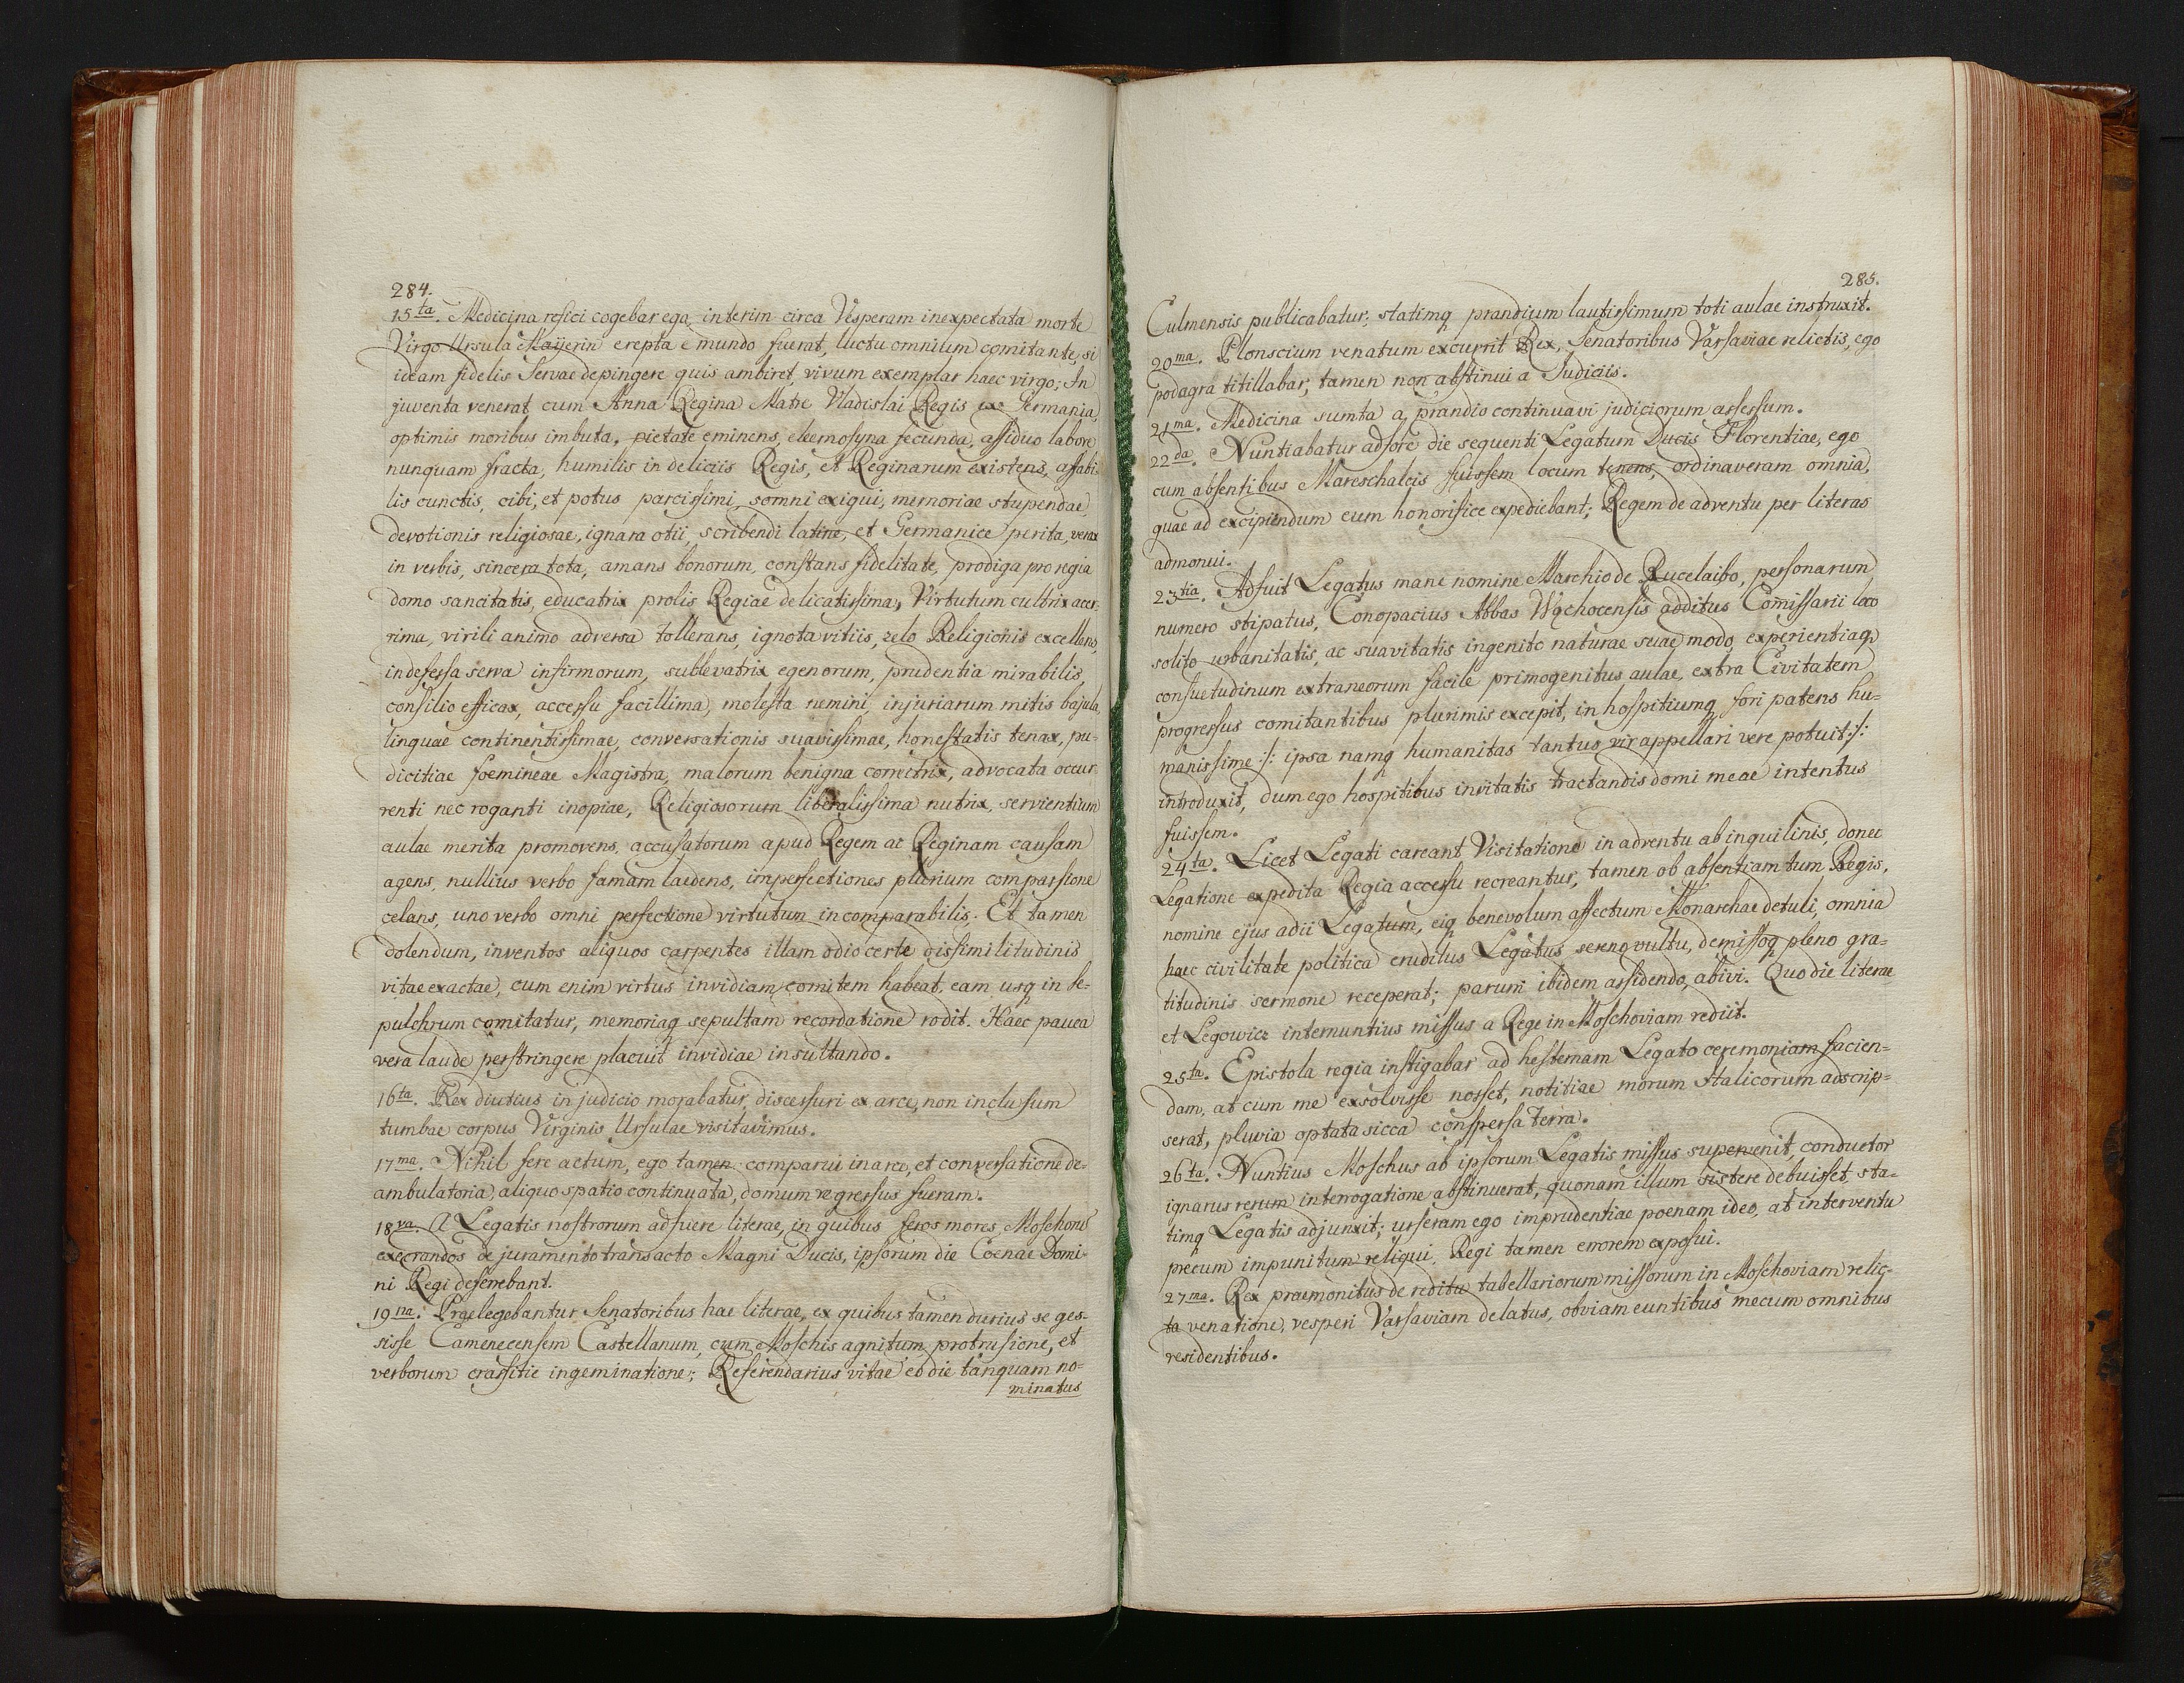 284.
15ta. Medicina refici cogebar ego, interim circa Vesperam inexpectata morte
Virgo Ursula Mayerin erepta e mundo fuerat, luctu omnium comitante, si
ideam fidelis Servae depingere quis ambiret, vivum exemplar haec virgo; In
juventa venerat cum Anna Regina Matre Vladislai Regis ex Germania,
optimis moribus imbuta, pietate eminens, eleemosyna fecunda, assiduo labore
nunquam fracta, humilis in deliciis Regis, et Reginarum existens, affabi-
lis cunctis, cibi, et potus parcissimi, somni exigui, memoriae stupendae
devotionis religiosae, ignara otii, scribendi latine, et Germanice perita, verax
in verbis, sincera tota, amans bonorum, constans fidelitate, prodiga pro regia
domo sancitatis, educatrix prolis Regiae delicatissima, Virtutum cultrix acer-
rima, virili animo adversa tollerans, ignota vitiis, zelo Religionis excellens,
indefessa serva infirmorum, sublevatrix egenorum, prudentia mirabilis,
consilio efficax, accessu facillima, molesta nemini, injuriarum mitis bajula,
linguae continentissimae, conversationis suavissimae, honestatis tenax, pu-
dicitiae foemineae Magistra, malorum benigna corretrix, advocata occur
renti nec roganti inopiae, Religiosorum liberalissima nutrix, servientium
aulae merita promovens, accusatorum apud Regem ac Reginam causam
agens, nullius verbo famam laedens, imperfectiones plurium compassione
celans, uno verbo omni perfectione virtutum incomparabilis. Et tamen
dolendum, inventos aliquos carpentes illam odio certe dissimilitudinis
vitae exactae, cum enim virtus invidiam comitem habeat, eam usq in se-
pulchrum comitatur, memoriaq sepultam recordatione rodit. Haec pauca
vera laude perstringere placuit invidiae insultando.
16ta. Rex diutius in judicio morabatur, discessuri ex arce, non inclusum
tumbae corpus Virginis Ursulae visitavimus.
17ma. Nihil fere actum, ego tamen comparui in arce, et conversatione de-
ambulatoria, aliquo spatio continuata, domum regressus fueram.
18va. A Legatis nostrorum adfuere literae, in quibus feros mores Moschorum
execrandos de juramento transacto Magni Ducis, ipsorum die Coenae Domi-
ni Regi deferebant.
19na. Praelegebantur Senatoribus hae literae, ex quibus tamen durius se ges-
sisse Camenecensem Castellanum, cum Moschis agnitum, protrusione, et
verborum crassitie ingeminatione; Referendarius vitae eo die tanquam no-
minatus
285.
Culmensis publicabatur, statimq prandium lautissimum toti aulae instruxit.
20ma. Plonscium venatum excurrit Rex, Senatoribus Varsaviae relictis, ego
podagra titillabar, tamen non abstinui a Judiciis.
21ma. Medicina sumta a prandio continuavi judiciorum assessum.
22da. Nuntiabatur adfore die sequenti Legatum Ducis Florentiae, ego
cum absentibus Mareschalcis fuissem locum tenens, ordinaveram omnia,
quae ad excipiendum eum honorifice expediebant; Regem de adventu per literas
admonui.
23tia. Adfuit Legatus mane nomine Marchio de Rucelaibo, personarum
numero stipatus, Conopacius Abbas Wąchocensis additus Com̄issarii loco
solito urbanitatis, ac suavitatis ingenito naturae suae modo, experientiaq
consuetudinum extraneorum facile primogenitus aulae, extra Civitatem
progressus comitantibus plurimis excepit, in hospitiumq fori patens hu-
manissime :/: ipsa namq humanitas tantus vir appellari vere potuit :/:
introduxit, dum ego hospitibus invitatis tractandis domi meae intentus
fuissem.
24ta. Licet Legati careant Visitatione in adventu ab inquilinis, donec
Legatione expedita Regia accessu recreantur, tamen ob absentiam tum Regis,
nomine ejus adii Legatum, eiq benevolum affectum Monarchae detuli, omnia
haec civilitate politica eruditus Legatus sereno vultu, demissoq pleno gra-
titudinis sermone receperat; parum ibidem assidendo, abivi. Quo die literae
et Legowicz internuntius missus a Rege in Moschoviam rediit.
25ta. Epistola regia instigabar ad hesternam Legato ceremoniam facien-
dam, at cum me exsolvisse nosset, notitiae morum Italicorum adscrip-
serat, pluvia optata sicca conspersa Terra.
26ta. Nuntius Moschus ab ipsorum Legatis missus supervenit, conductor
ignarus rerum interrogatione abstinuerat, quonam illum sistere debuisset, sta-
timq Legatis adjunxit; urseram ego imprudentiae poenam ideo, at interventu
precum impunitum reliqui, Regi tamen errorem exposui.
27ma. Rex praemonitus de reditu tabellariorum missorum in Moschoviam relic-
ta venatione, vesperi Varsaviam delatus, obviam euntibus mecum omnibus
residentibus.